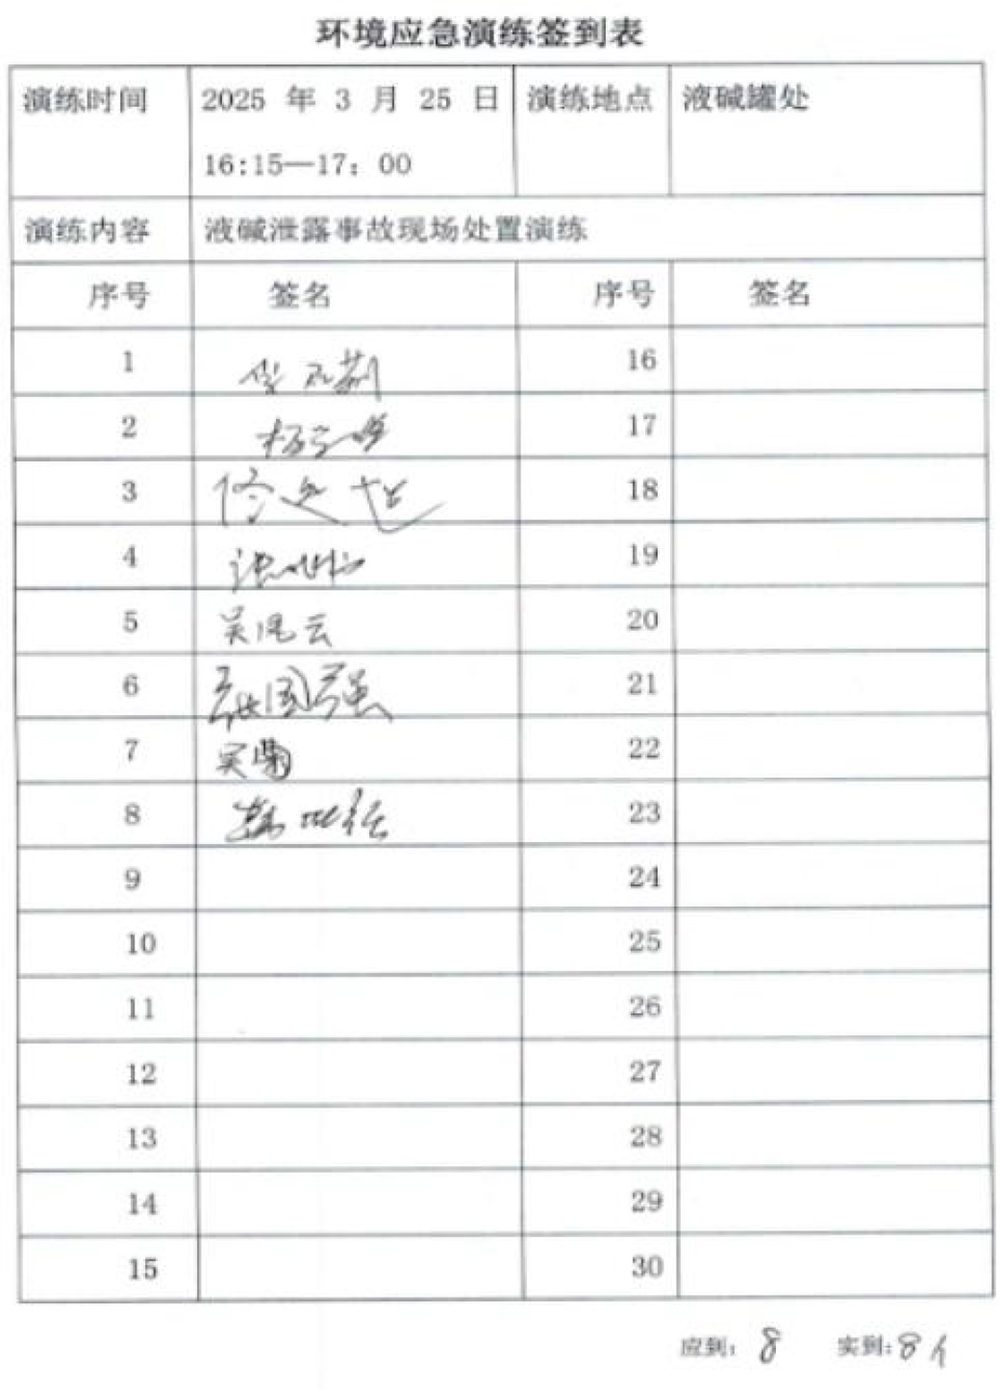 环境应急演练签到表
演练时间 2025 年 3 月 25 日 演练地点 液碱罐处
16:15—17：00
演练内容 液碱泄露事故现场处置演练
序号 签名 序号 签名
1 16
2 17
3 18
4 19
5 吴凤云 20
6 张国强 21
7 吴菊 22
8 23
9 24
10 25
11 26
12 27
13 28
14 29
15 30
应到：8 实到：8人